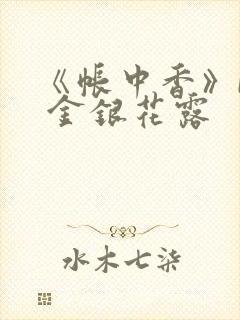 《帐中香》
金银花露
水木七柒